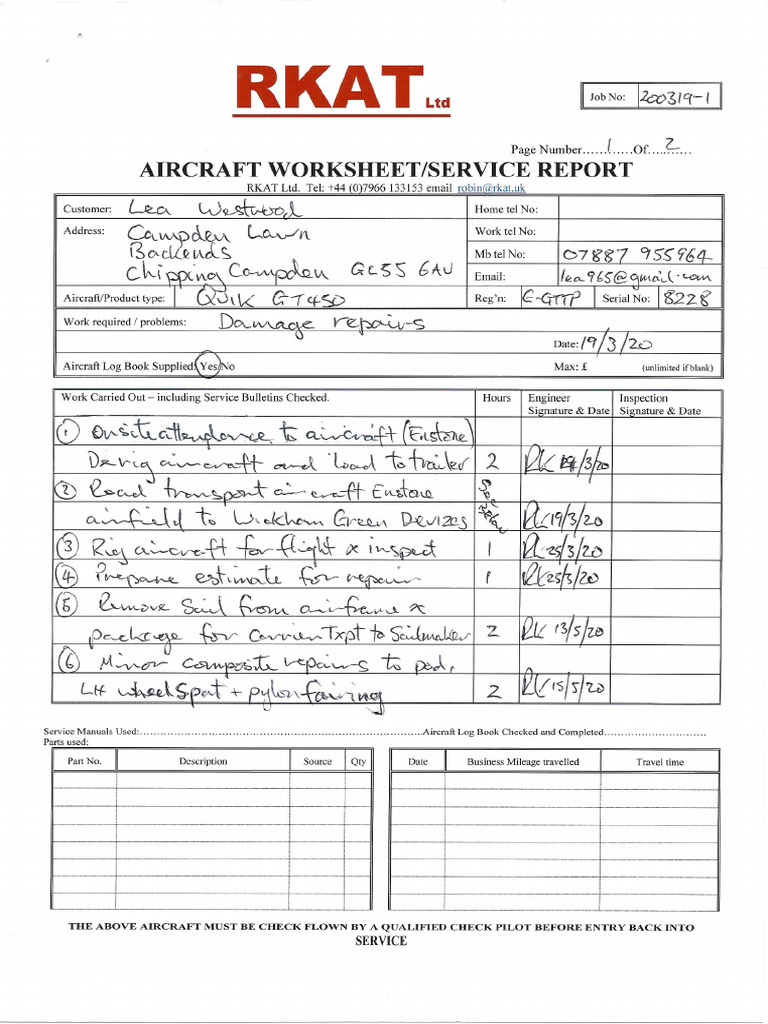 RKAT Ltd
Job No: 200319-1
Page Number......1......Of.....2.....
AIRCRAFT WORKSHEET/SERVICE REPORT
RKAT Ltd. Tel: +44 (0)7966 133153 email robin@rkat.uk
Customer: Lea Westwood
Home tel No:
Address: Campden Lawn
Work tel No:
Backends
Mb tel No: 07887 955964
Chipping Campden GL55 6AU
Email: lea965@gmail.com
Aircraft/Product type: QUIK GT450
Reg'n: G-GTTP Serial No: 8228
Work required / problems: Damage repairs
Date: 19/3/20
Aircraft Log Book Supplied: Yes/No
Max: £ (unlimited if blank)
Work Carried Out – including Service Bulletins Checked. Hours Engineer Signature & Date Inspection Signature & Date
① Onsite attendance to aircraft (Enstone)
Derig aircraft and load to trailer 2 RK 19/3/20
② Road transport aircraft Enstone See
airfield to Wickham Green Devizes Below RK 19/3/20
③ Rig aircraft for flight & inspect 1 RK 25/3/20
④ Prepare estimate for repair 1 RK 25/3/20
⑤ Remove Sail from airframe &
package for Carrier Txpt to Sailmaker 2 RK 13/5/20
⑥ Minor composite repairs to pod,
LH wheel Spat + pylon fairing 2 RK 15/5/20
Service Manuals Used:..........Aircraft Log Book Checked and Completed..........
Parts used:
Part No. Description Source Qty
Date Business Mileage travelled Travel time
THE ABOVE AIRCRAFT MUST BE CHECK FLOWN BY A QUALIFIED CHECK PILOT BEFORE ENTRY BACK INTO
SERVICE